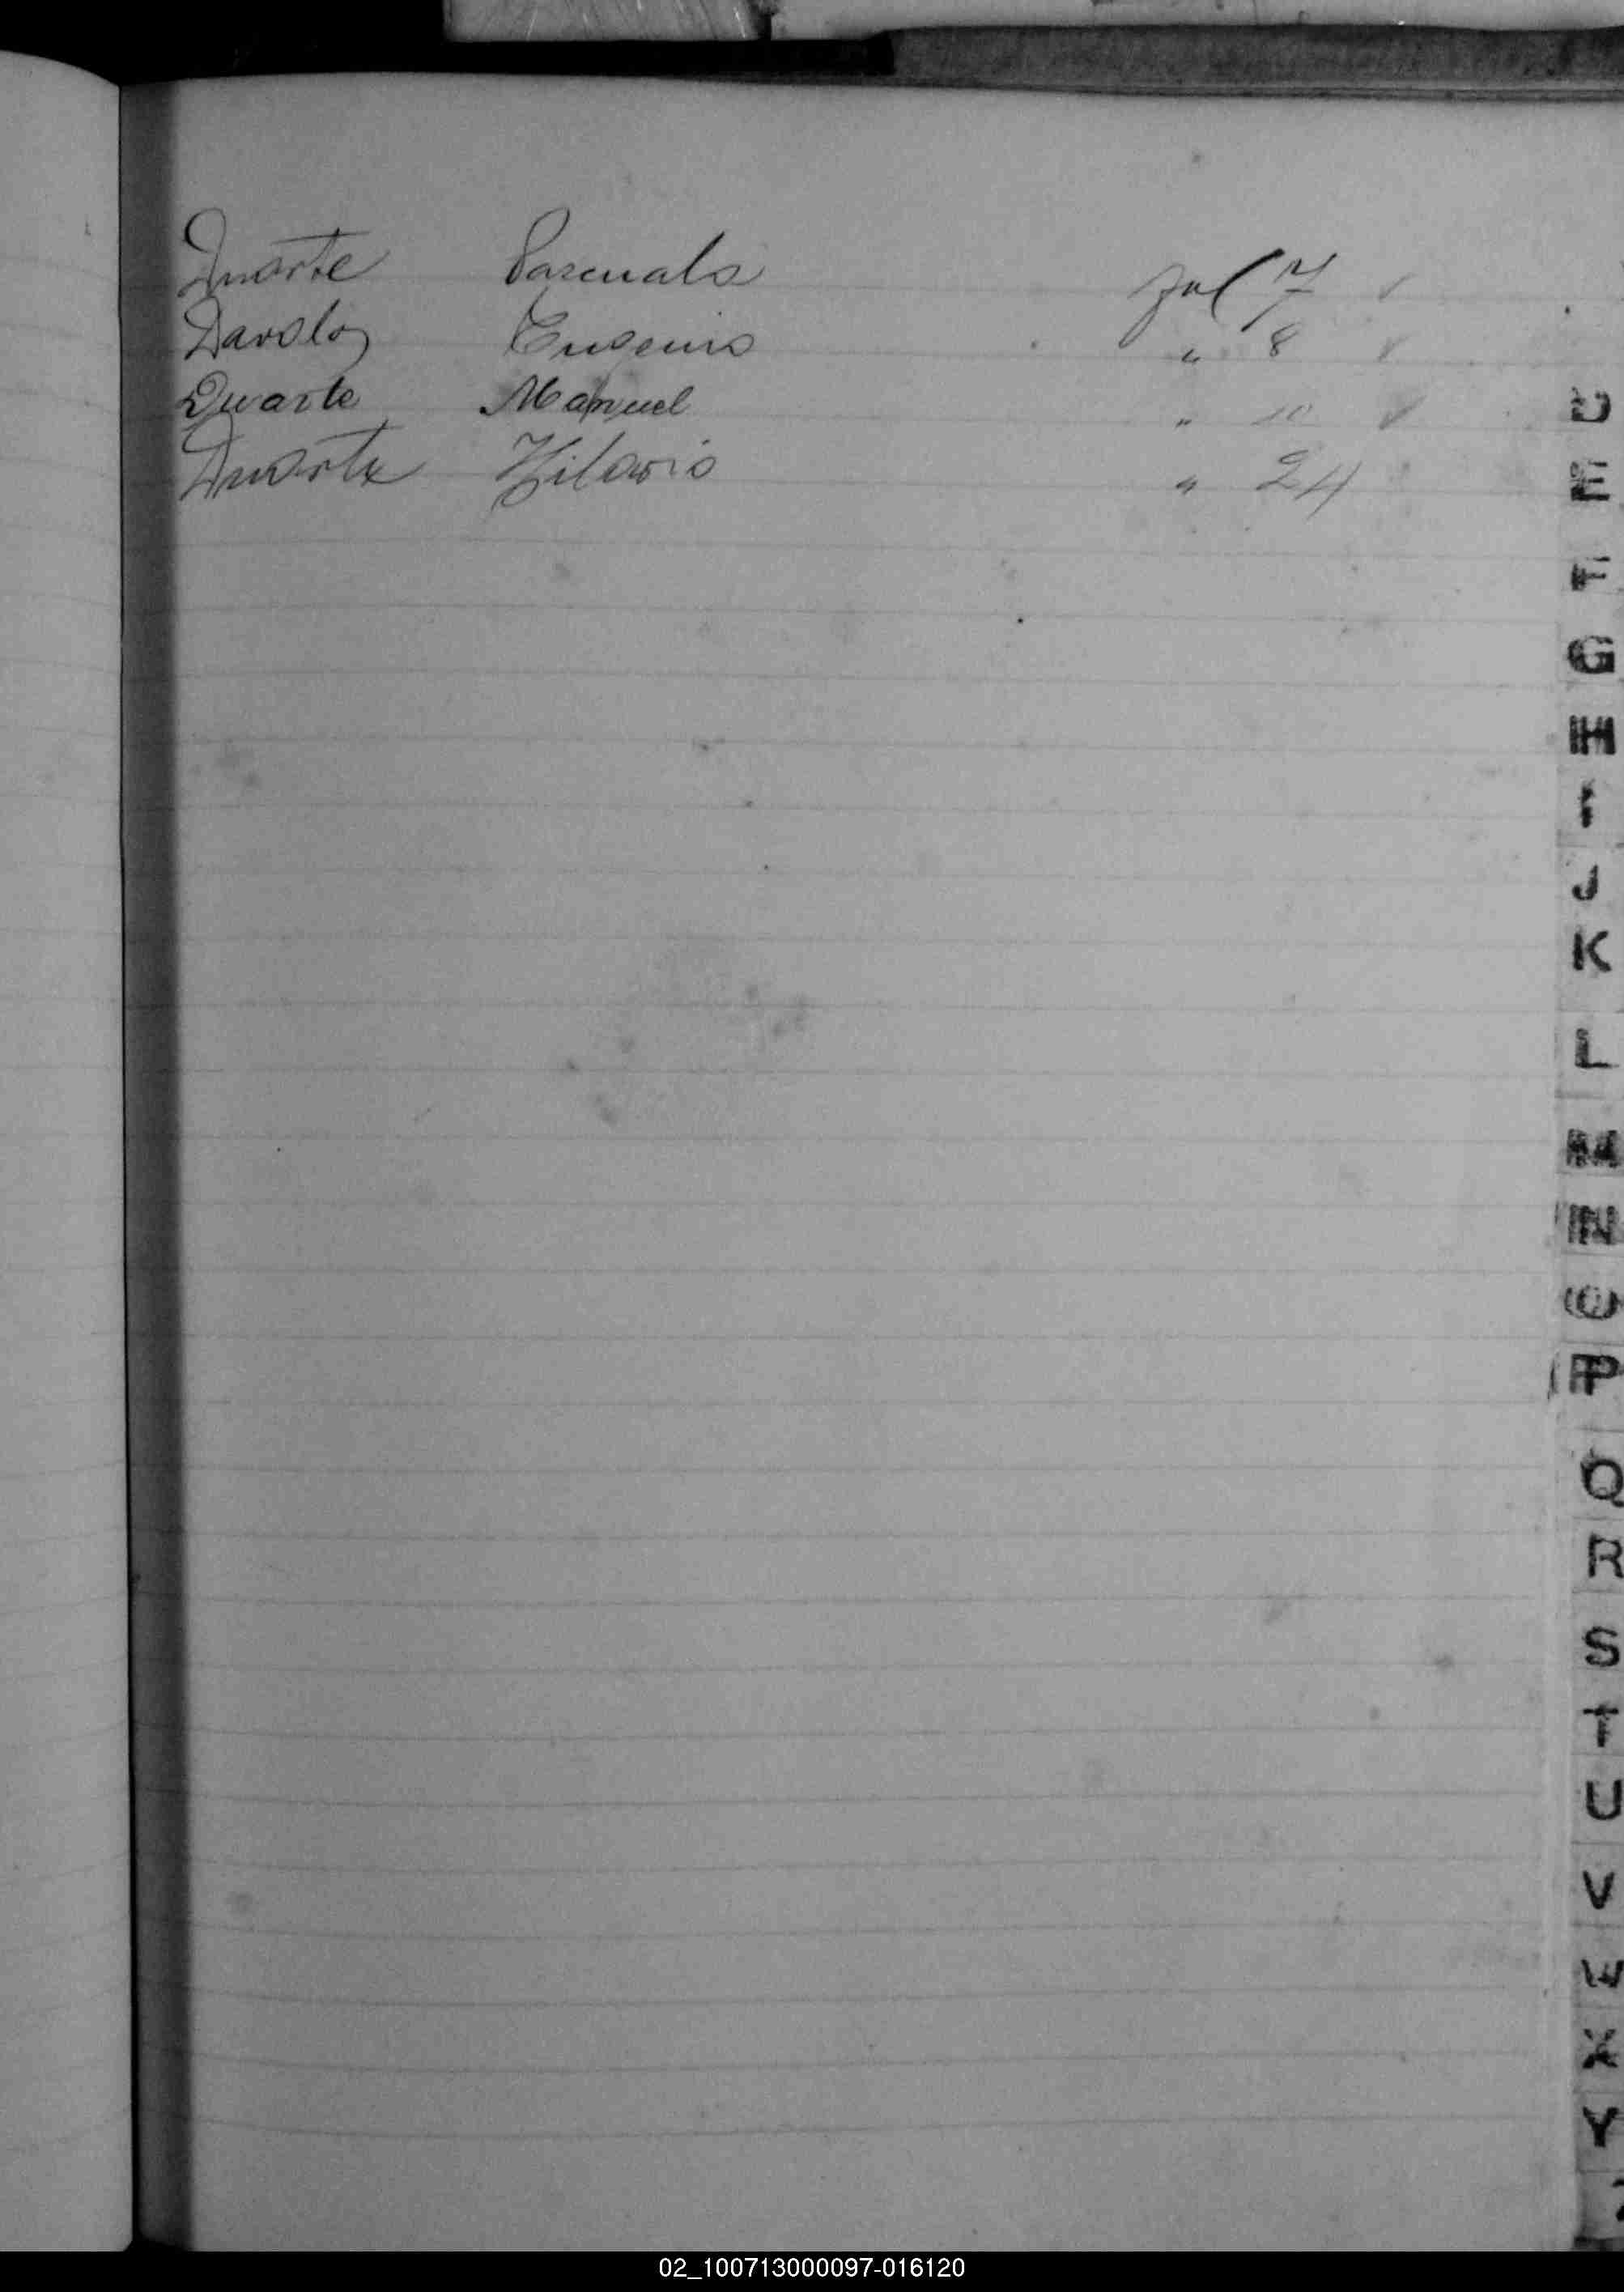 Duarte Pascuala Jul 7 ✓
Davalos Eugenio " 8 ✓
Duarte Manuel " 10 ✓
Duarte Hilario " 24
D
E
F
G
H
I
J
K
L
M
N
O
P
Q
R
S
T
U
V
W
X
Y
02_100713000097-016120